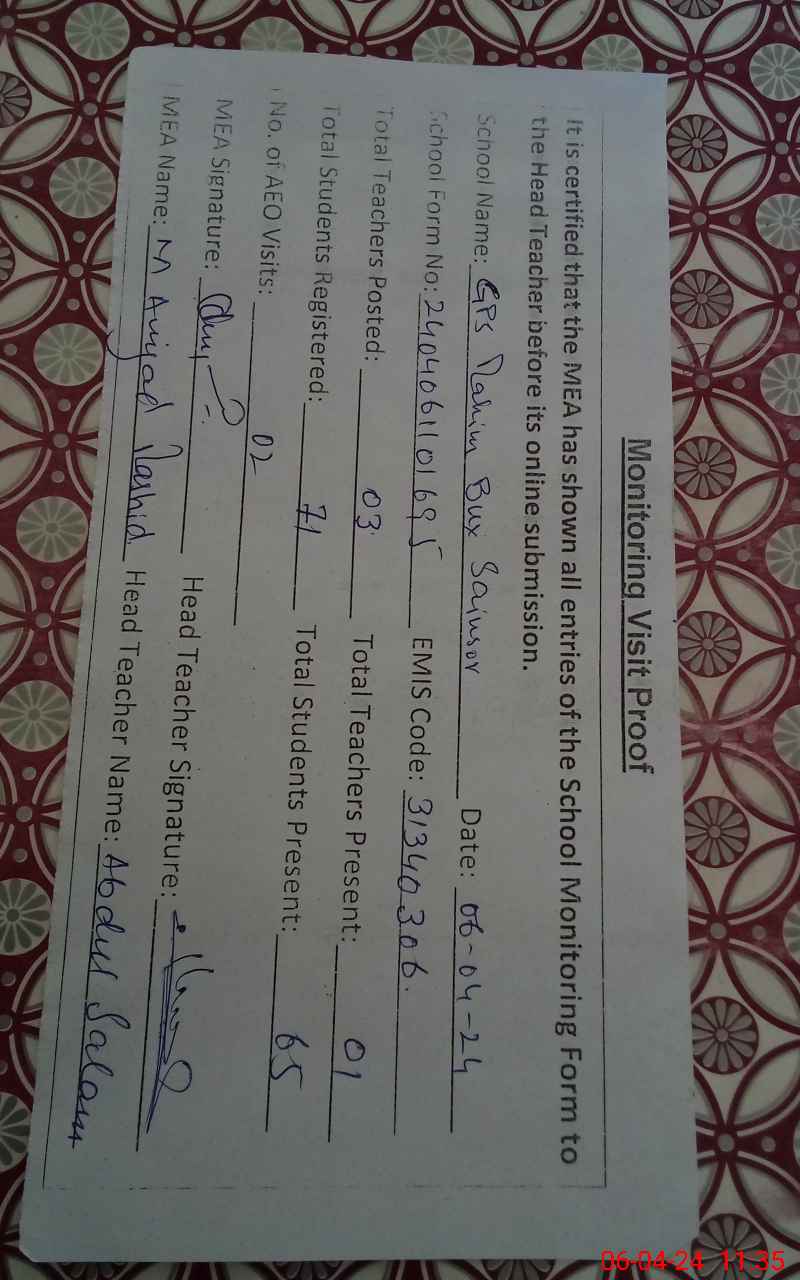 Monitoring Visit Proof
It is certified that the MEA has shown all entries of the School Monitoring Form to
the Head Teacher before its online submission.
School Name: GPS Rahim Bux Date: 06-04-24
School Form No: 2404061101695 EMIS Code: 31340306.
Total Teachers Posted: 03 Total Teachers Present: 01
Total Students Registered: 71 Total Students Present: 65
No. of AEO Visits: 02
MEA Signature: Head Teacher Signature:
MEA Name: M Rashid Head Teacher Name: Abdul Salam
06-04-24 11:35